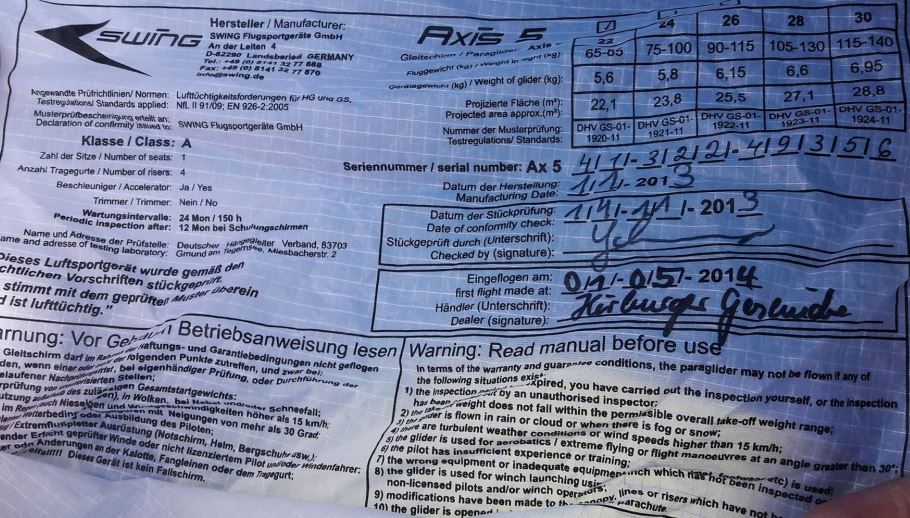 swing
Hersteller / Manufacturer:
SWING Flugsportgeräte GmbH
An der Leiten 4
D-82290 Landsberied GERMANY
Tel.: +49 (0) 8141 32 77 888
Fax: +49 (0) 8141 32 77 870
info@swing.de
Angewandte Prüfrichtlinien/ Normen: Lufttüchtigkeitsforderungen für HG und GS,
Testregulations/ Standards applied: NfL II 91/09; EN 926-2:2005
Musterprüfbescheinigung erteilt an:
Declaration of conformity issued to: SWING Flugsportgeräte GmbH
Klasse / Class: A
Zahl der Sitze / Number of seats: 1
Anzahl Tragegurte / Number of risers: 4
Beschleuniger / Accelerator: Ja / Yes
Trimmer / Trimmer: Nein / No
Wartungsintervalle: 24 Mon / 150 h
Periodic inspection after: 12 Mon bei Schulungschirmen
Name und Adresse der Prüfstelle: Deutscher Hängegleiter Verband, 83703
name and adresse of testing laboratory: Gmund am Tegernsee, Miesbacherstr. 2
"Dieses Luftsportgerät wurde gemäß den
Vorschriften stückgeprüft.
stimmt mit dem geprüften Muster überein
ist lufttüchtig."
Axis 5
Gleitschirm / Paraglider Axis -
22 24 26 28 30
Fluggewicht (kg) / Weight in flight (kg): 65-85 75-100 90-115 105-130 115-140
Gerätegewicht (kg) / Weight of glider (kg): 5,6 5,8 6,15 6,6 6,95
Projizierte Fläche (m²):
Projected area approx.(m²): 22,1 23,8 25,5 27,1 28,8
Nummer der Musterprüfung:
Testregulations/ Standards: DHV GS-01-1920-11 DHV GS-01-1921-11 DHV GS-01-1922-11 DHV GS-01-1923-11 DHV GS-01-1924-11
Seriennummer / serial number: Ax 5 411-3222-4913156
Datum der Herstellung:
Manufacturing Date: 11-2013
Datum der Stückprüfung:
Date of conformity check: 14-11-2013
Stückgeprüft durch (Unterschrift):
Checked by (signature):
Eingeflogen am:
first flight made at: 01-05-2014
Händler (Unterschrift):
Dealer (signature):
Warnung: Vor Gebrauch Betriebsanweisung lesen
Gleitschirm darf im Rahmen der Haftungs- und Garantiebedingungen nicht geflogen
werden, wenn einer oder mehrere der folgenden Punkte zutreffen, und zwar bei:
abgelaufener Nachprüffrist, bei eigenhändiger Prüfung, oder Durchführung der
Stellen;
des zulässigen Gesamtstartgewichts;
in Wolken, bei Schneefall;
und höher als 15 km/h;
mit Neigungen von mehr als 30 Grad;
oder Ausbildung des Piloten;
Ausrüstung (Notschirm, Helm, Bergschuhe usw.);
geprüfter Winde oder nicht lizenziertem Pilot und/oder Windenfahrer:
oder Änderungen an der Kalotte, Fangleinen oder dem Tragegurt;
Dieses Gerät ist kein Fallschirm.
Warning: Read manual before use
In terms of the warranty and guarantee conditions, the paraglider may not be flown if any of
the following situations exist:
1) the inspection expired, you have carried out the inspection yourself, or the inspection
has been by an unauthorised inspector;
2) the take-off weight does not fall within the permissible overall take-off weight range;
3) the glider is flown in rain or cloud or when there is fog or snow;
4) there are turbulent weather conditions or wind speeds higher than 15 km/h;
5) the glider is used for aerobatics / extreme flying or flight manoeuvres at an angle greater than 30°;
6) the pilot has insufficient experience or training;
7) the wrong equipment or inadequate equipment etc) is used;
8) the glider is used for winch launching using winch which has not been inspected or
non-licensed pilots and/or winch operators;
9) modifications have been made to the canopy, lines or risers which have not
10) the glider is opened parachute.